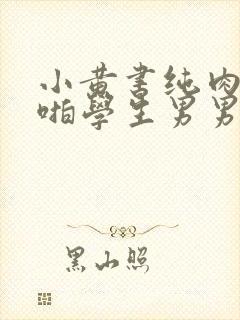 小黄書纯肉
啪學生男男
黑山照